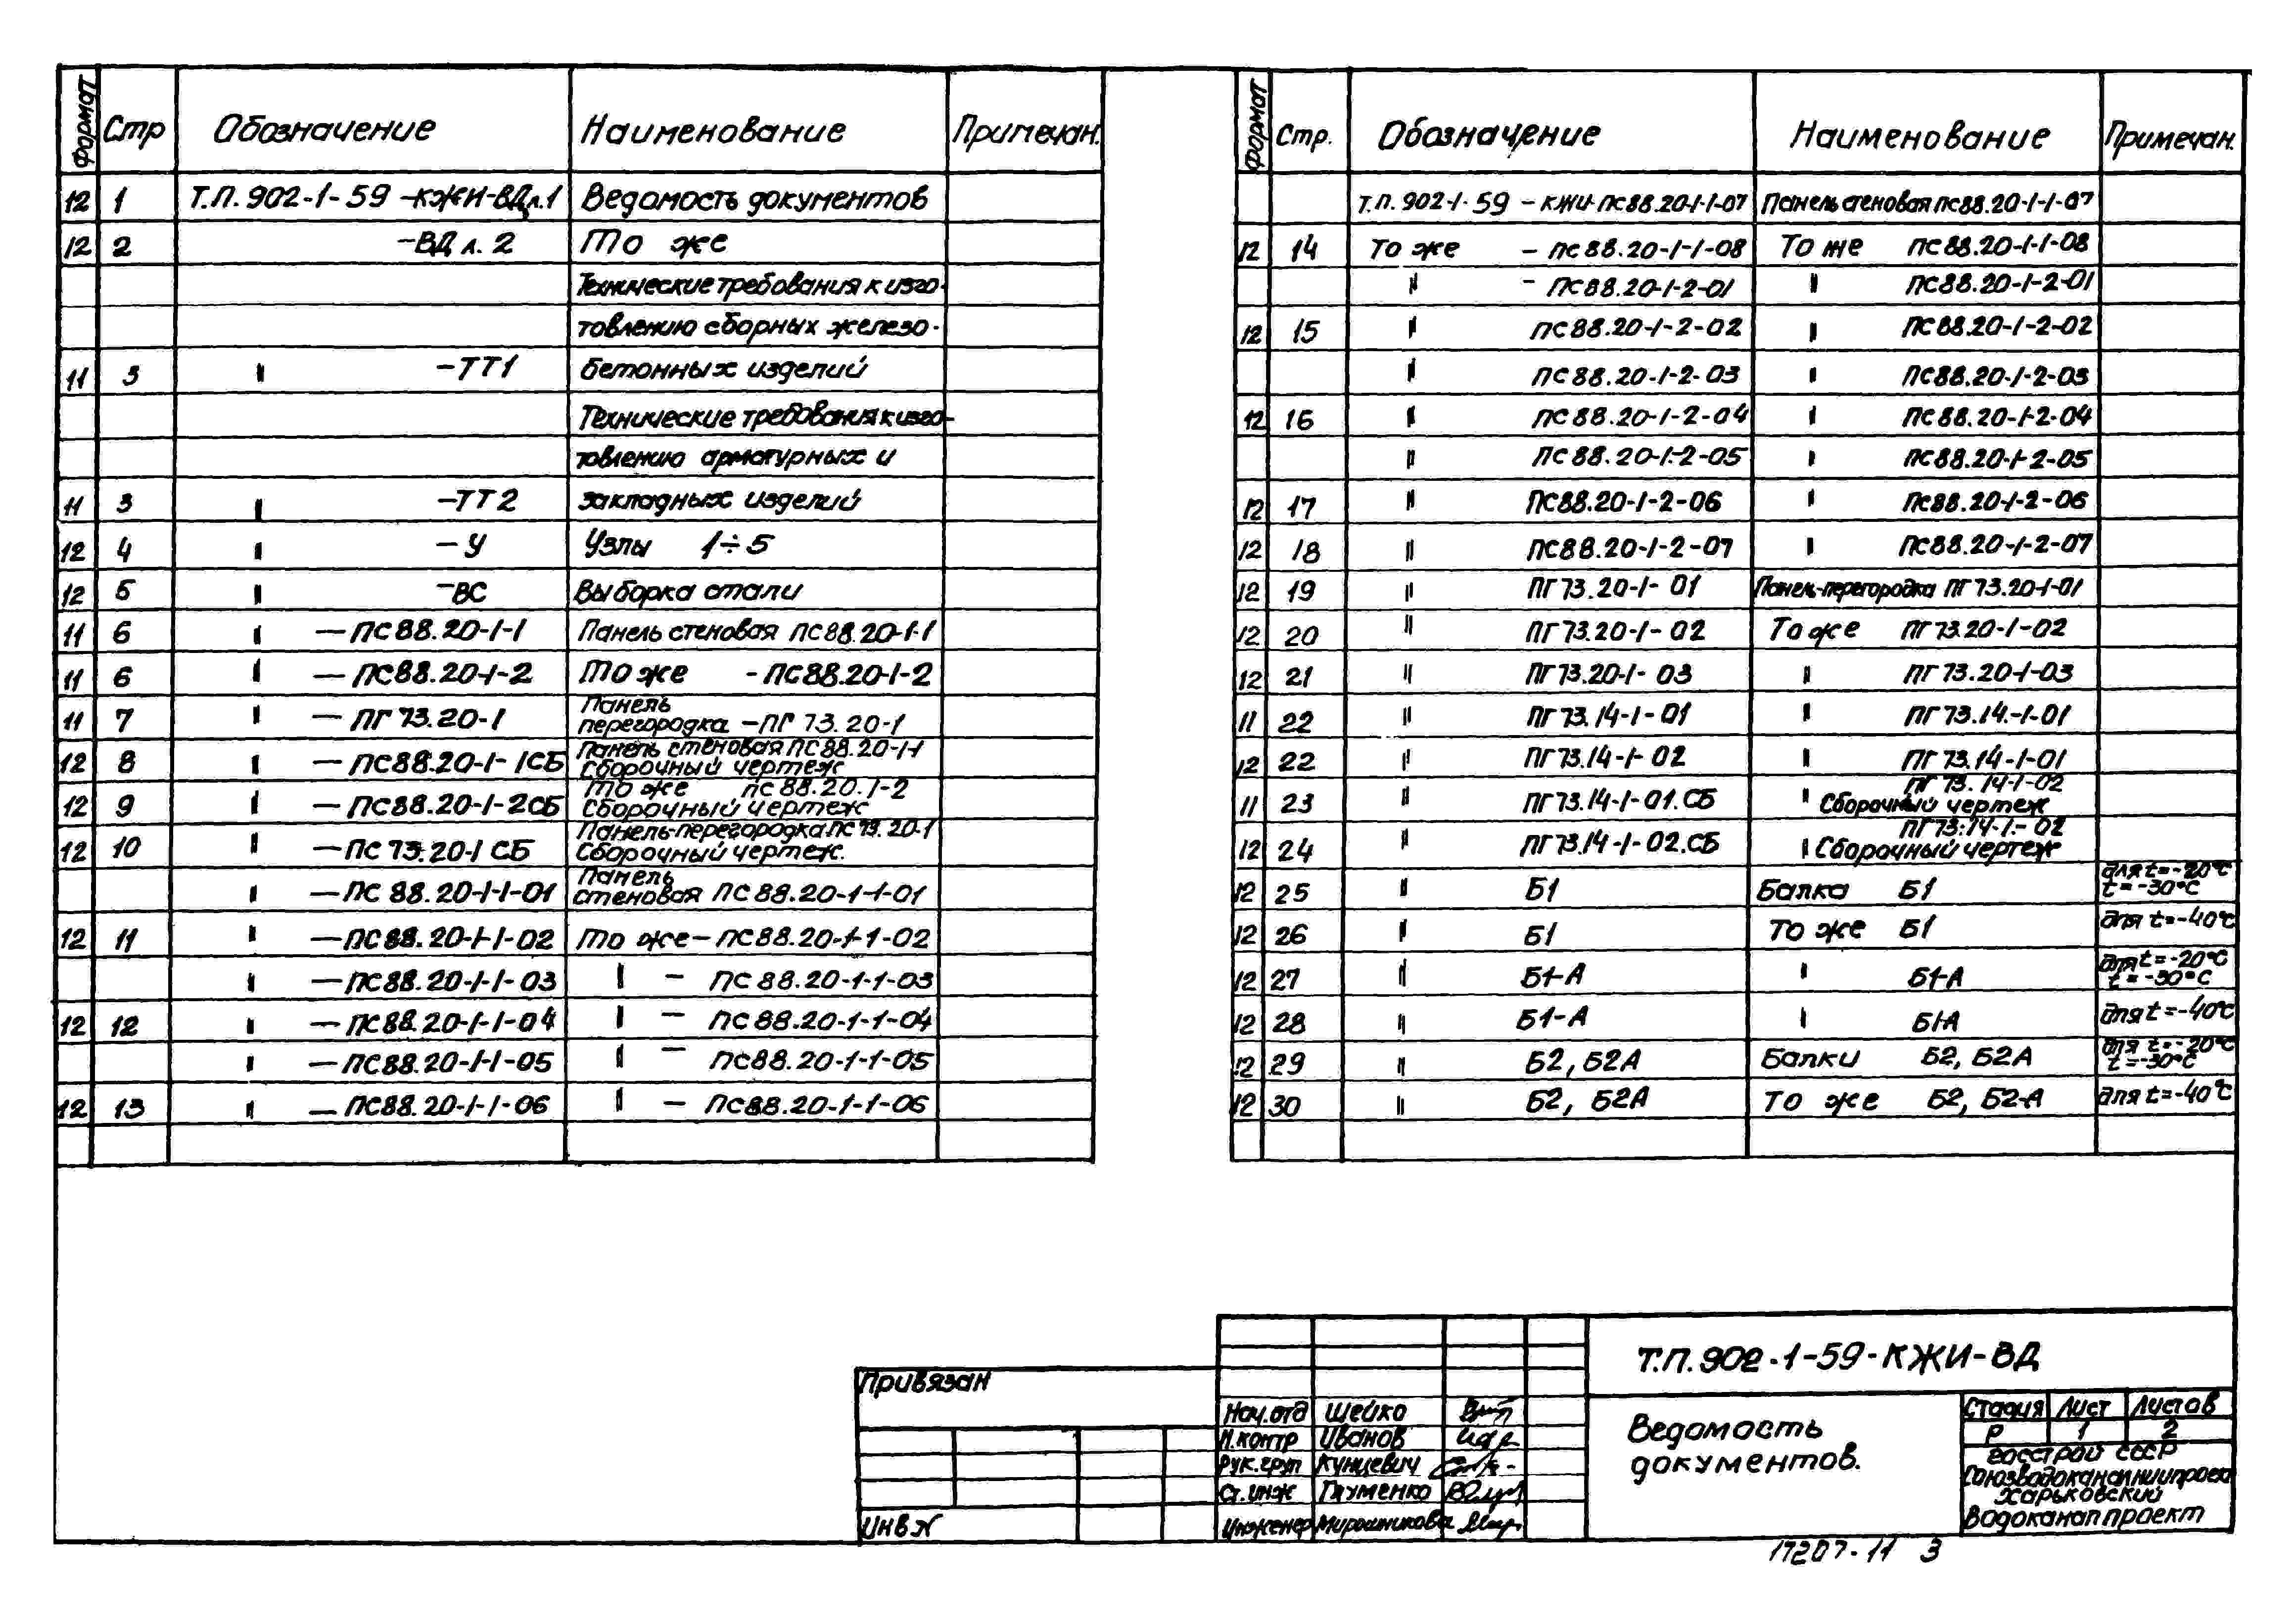 Формат Стр Обозначение Наименование Примечан.
12 1 Т.П. 902-1-59-КЖИ-ВД л.1 Ведомость документов
12 2 -ВД л. 2 То же
Технические требования к изго-
товлению сборных железо-
11 3 " -ТТ1 бетонных изделий
Технические требования к изго-
товлению арматурных и
11 3 " -ТТ2 закладных изделий
12 4 " -У Узлы 1÷5
12 5 " -ВС Выборка стали
11 6 " -ПС88.20-1-1 Панель стеновая ПС88.20-1-1
11 6 " -ПС88.20-1-2 То же -ПС88.20-1-2
11 7 " -ПГ 73.20-1 Панель
перегородка -ПГ 73.20-1
12 8 " -ПС88.20-1-1СБ Панель стеновая ПС88.20-1-1
Сборочный чертеж
12 9 " -ПС88.20-1-2СБ То же ПС 88.20.1-2
Сборочный чертеж
12 10 " -ПС 73.20-1 СБ Панель-перегородка ПС 73.20-1
Сборочный чертеж.
" -ПС 88.20-1-1-01 Панель
стеновая ПС 88.20-1-1-01
12 11 " -ПС88.20-1-1-02 То же - ПС88.20-1-1-02
" -ПС88.20-1-1-03 " - ПС 88.20-1-1-03
12 12 " -ПС88.20-1-1-04 " - ПС 88.20-1-1-04
" -ПС88.20-1-1-05 " - ПС88.20-1-1-05
12 13 " -ПС88.20-1-1-06 " - ПС88.20-1-1-06
Формат Стр. Обозначение Наименование Примечан.
Т.П. 902-1-59-КЖИ-ПС88.20-1-1-07 Панель стеновая ПС88.20-1-1-07
12 14 То же - ПС88.20-1-1-08 То же ПС88.20-1-1-08
" - ПС88.20-1-2-01 " ПС88.20-1-2-01
12 15 " ПС88.20-1-2-02 " ПС88.20-1-2-02
" ПС88.20-1-2-03 " ПС88.20-1-2-03
12 16 " ПС88.20-1-2-04 " ПС88.20-1-2-04
" ПС88.20-1-2-05 " ПС88.20-1-2-05
12 17 " ПС88.20-1-2-06 " ПС88.20-1-2-06
12 18 " ПС88.20-1-2-07 " ПС88.20-1-2-07
12 19 " ПГ73.20-1-01 Панель-перегородка ПГ73.20-1-01
12 20 " ПГ73.20-1-02 То же ПГ73.20-1-02
12 21 " ПГ73.20-1-03 " ПГ73.20-1-03
11 22 " ПГ73.14-1-01 " ПГ73.14-1-01
12 22 " ПГ73.14-1-02 " ПГ73.14-1-01
11 23 " ПГ73.14-1-01.СБ " ПГ 73.14-1-02
Сборочный чертеж
12 24 " ПГ73.14-1-02.СБ " ПГ73.14-1-02
Сборочный чертеж
12 25 " Б1 Балка Б1 для t=-20°С
t=-30°С
12 26 " Б1 То же Б1 для t=-40°С
12 27 " Б1-А " Б1-А для t=-20°С
t=-30°С
12 28 " Б1-А " Б1-А для t=-40°С
12 29 " Б2, Б2А Балки Б2, Б2А для t=-20°С
t=-30°С
12 30 " Б2, Б2А То же Б2, Б2-А для t=-40°С
Привязан
Инв №
Нач.отд Шейко
Н.контр Иванов
Рук.груп Кунцевич
Ст.инж Глуменко
Инженер Мирошникова
Т.П. 902-1-59-КЖИ-ВД
Ведомость
документов.
Стадия Лист Листов
Р 1 2
Госстрой СССР
Союзводоканалниипроект
Харьковский
Водоканалпроект
17207-11 3